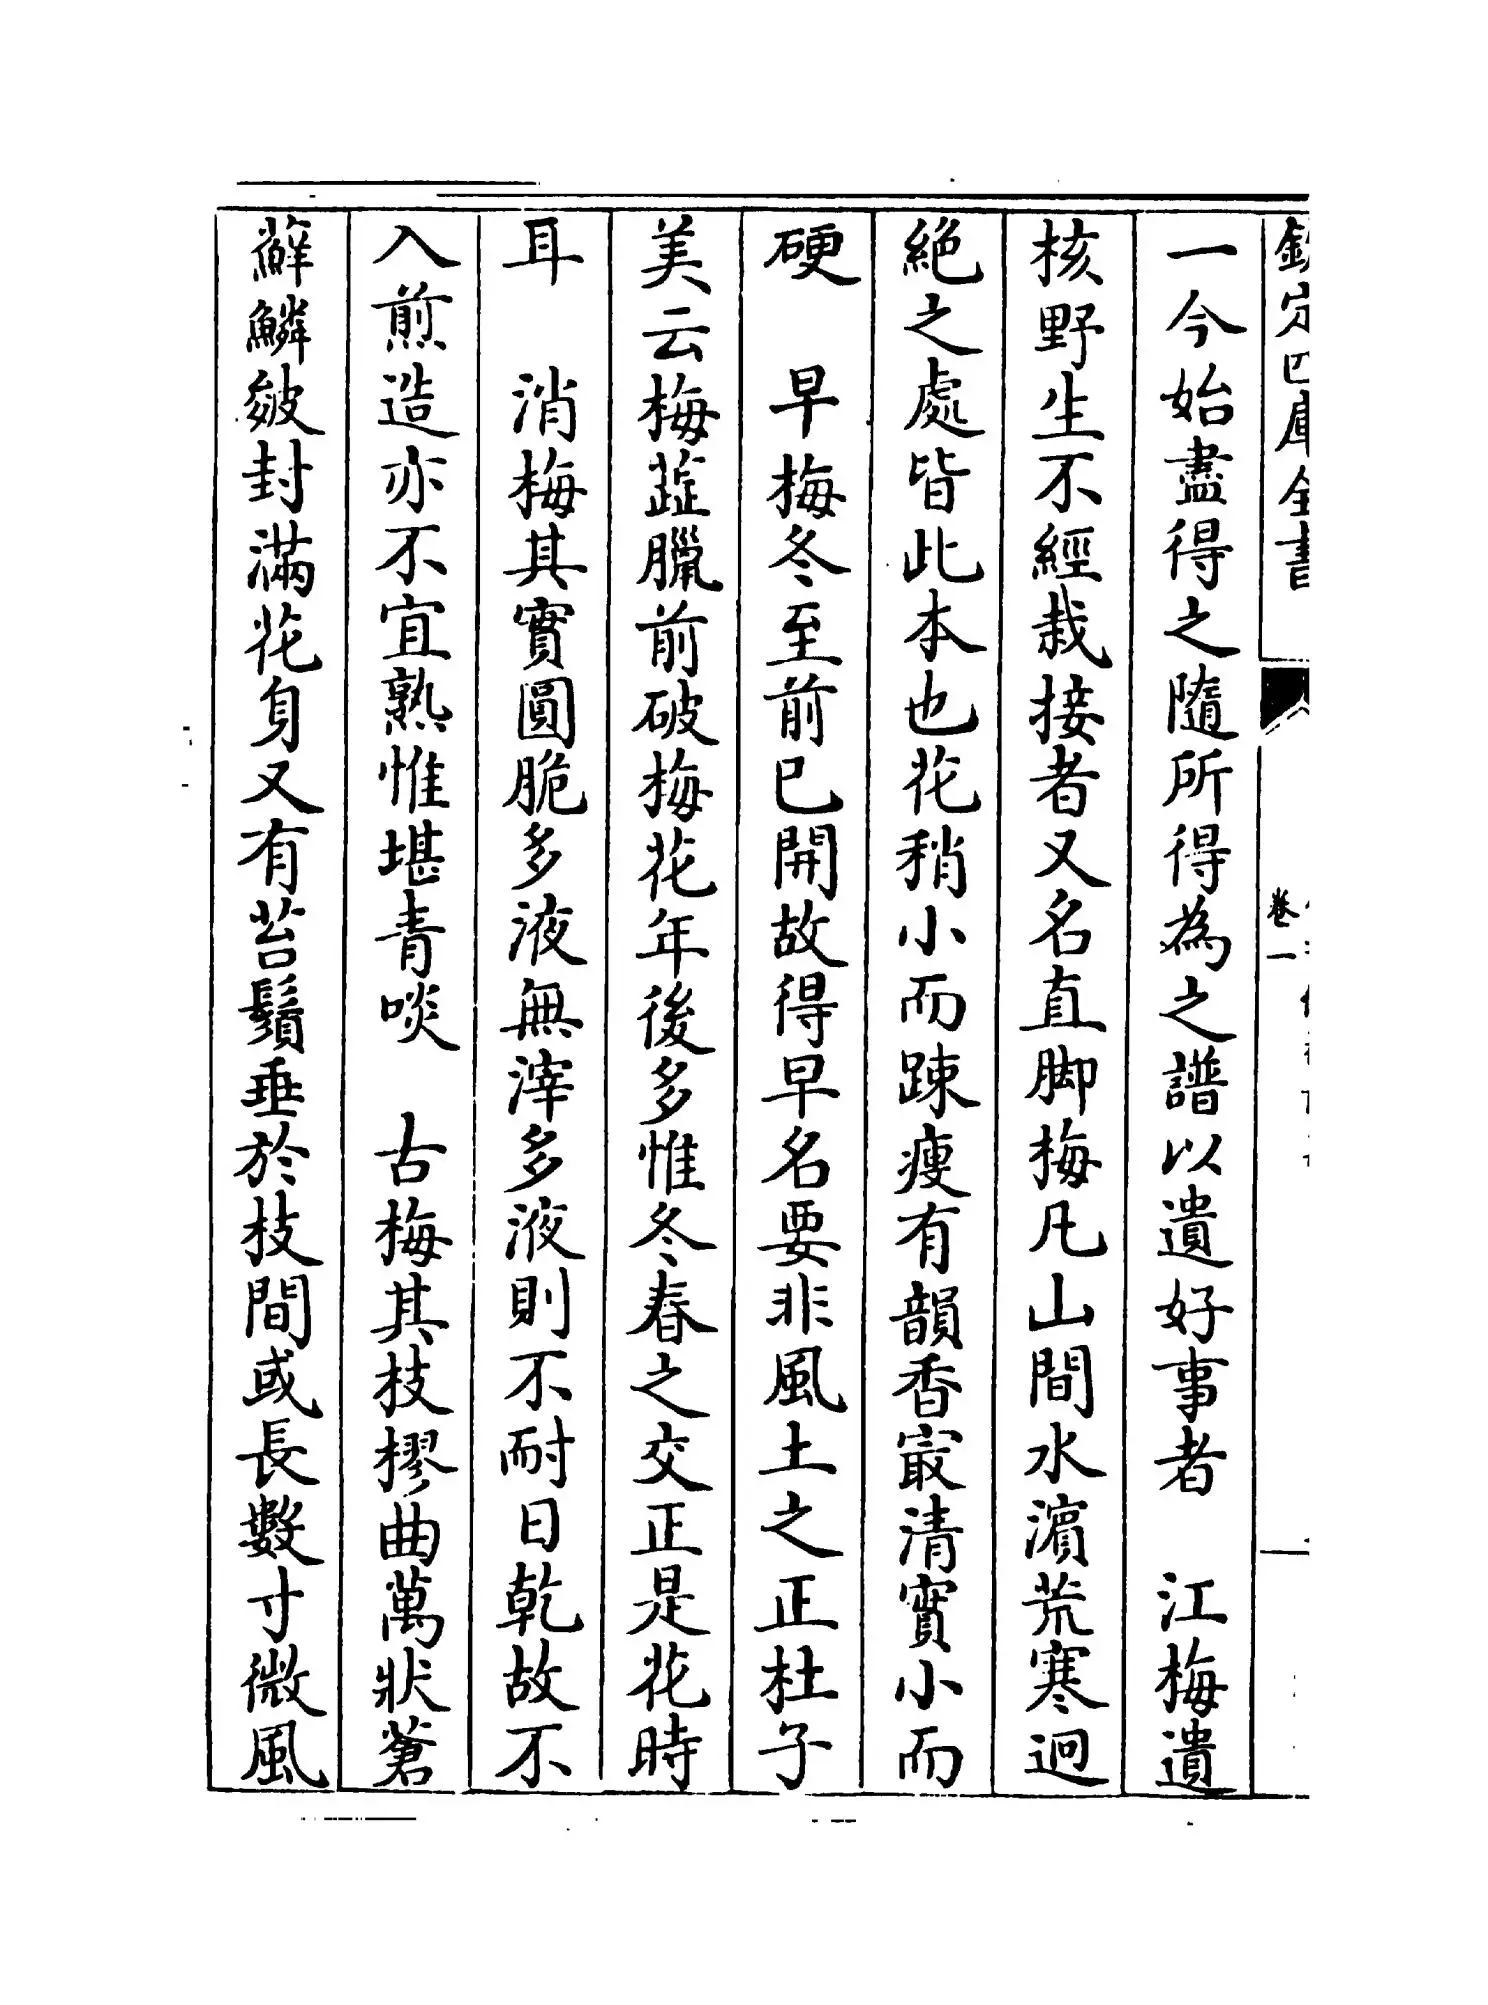 欽定四庫全書
卷一
一今始盡得之隨所得為之譜以遺好事者　江梅遺
核野生不經栽接者又名直脚梅凡山間水濵荒寒迥
絕之處皆此本也花稍小而踈瘦有韻香㝡清實小而
硬　早梅冬至前已開故得早名要非風土之正杜子
美云梅蘂臘前破梅花年後多惟冬春之交正是花時
耳　消梅其實圓脆多液無滓多液則不耐日乾故不
入煎造亦不宜熟惟堪青啖　古梅其枝樛曲萬狀蒼
蘚鱗皴封滿花身又有苔鬚垂於枝間或長數寸微風